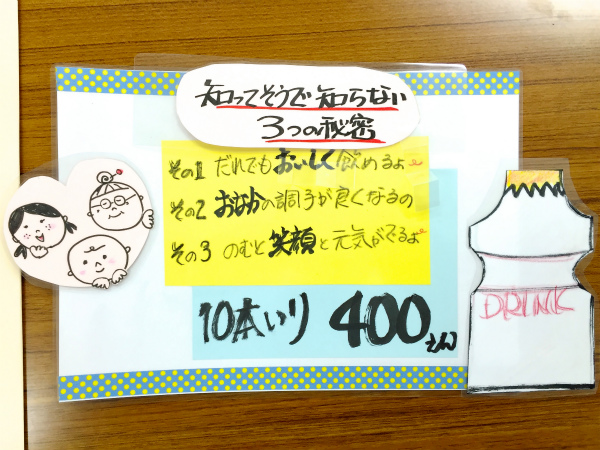 知ってそうで知らない
3つの秘密
その1 だれでもおいしく飲めるよ
その2 おなかの調子が良くなるの
その3 のむと笑顔と元気がでるよ
10本いり 400えん
DRINK